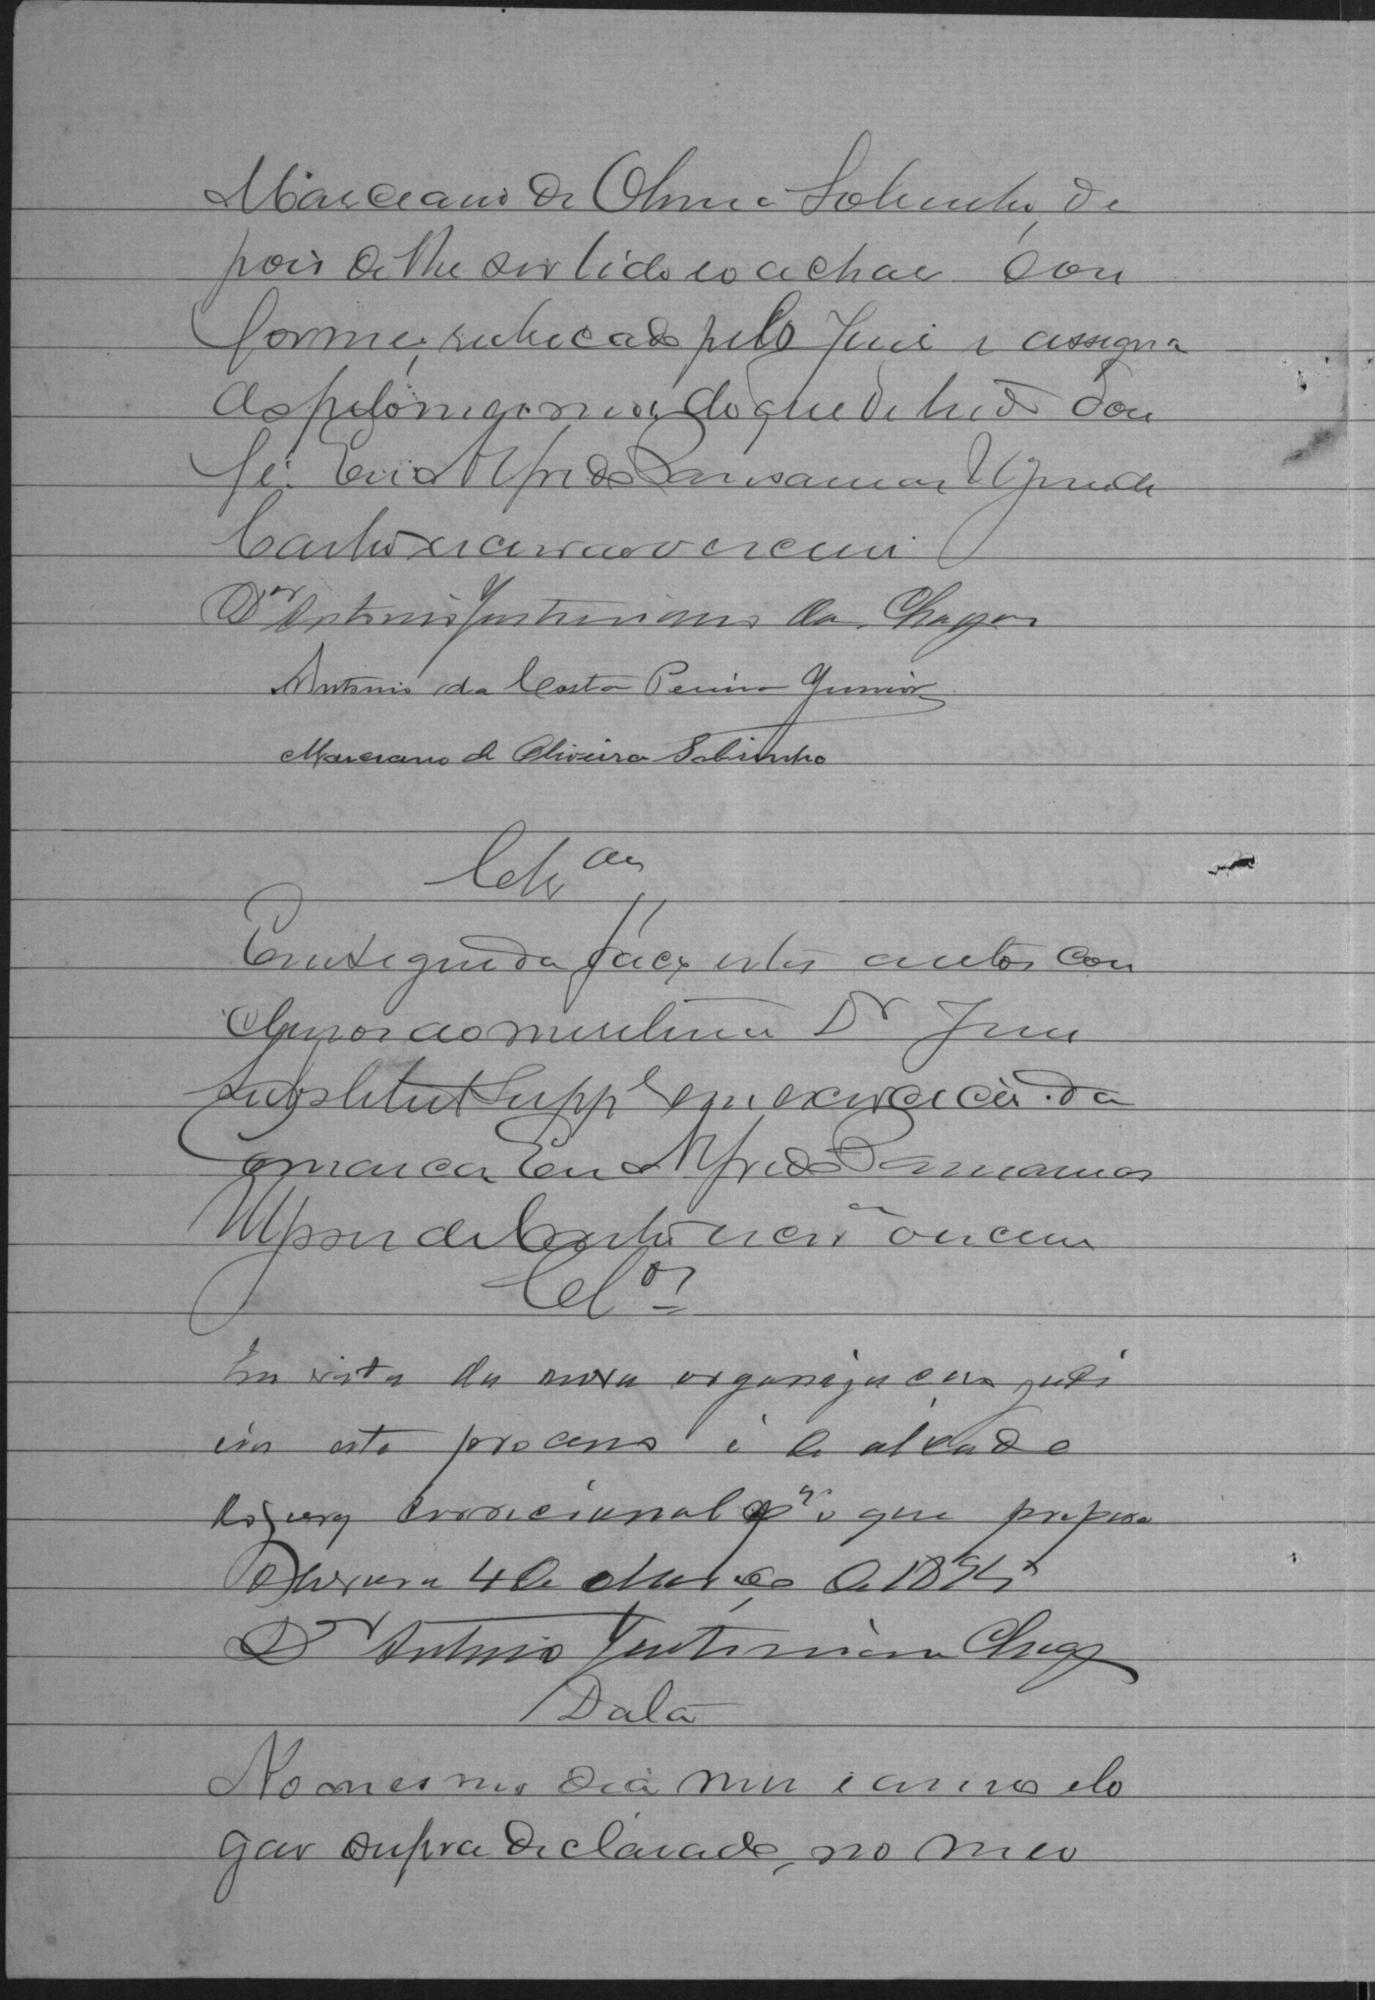 Marciano de Olivei Sobrinho, de
pois de lhe ser lido e o achar con
forme, rubricado pelo Juiz e assigna
do pelo mesmo, do que de tudo dou
fé. Eu Alfredo
escrivão o escrevi
Dor Antonio Justiniano das Chagas
Antonio da Costa Pereira Junior
Marciano de Oliveira Sobrinho
Clsam
Em seguida faço estes autos con
clusos ao meritissimo Dr Juiz
Substituto Suppl em exercicio da
Comarca Eu Alfredo
escram o escrevi
Clos
Em vista da nova organização judi
cia este processo é de alçada
do juizo correcional pa o que
4 de Março de 189
Dr Antonio Justiniano Chagas
Data
No mesmo dia mez e anno e lo
gar supra declarado, no meo